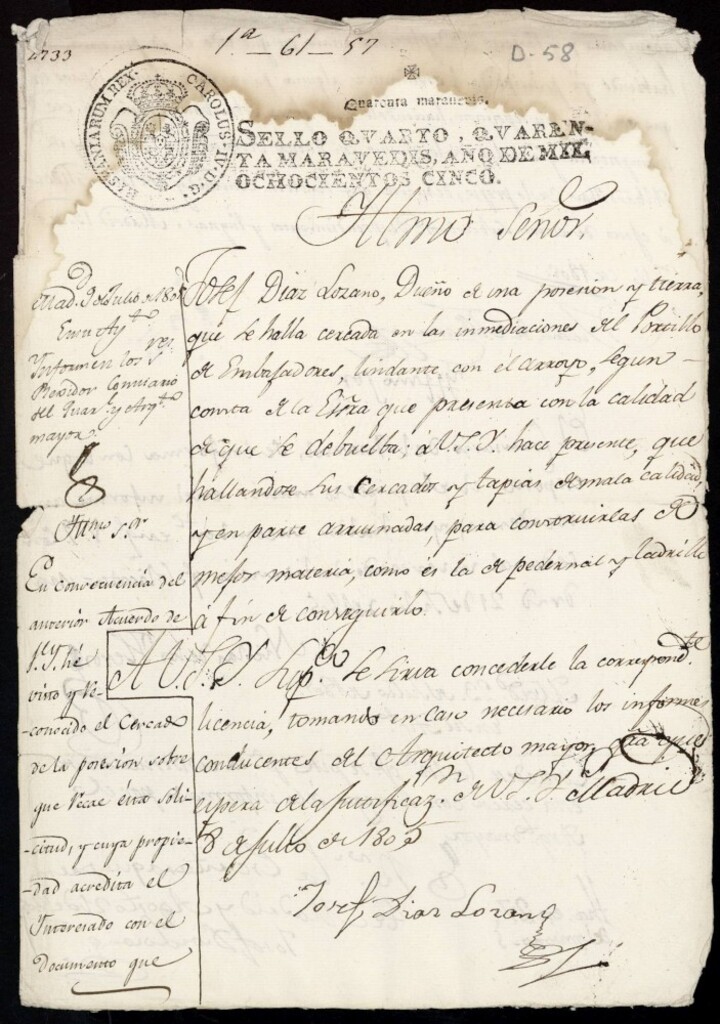 1733
1ª - 61 - 57
D-58
HISPANIARUM REX. CAROLUS. IV. D. G.
Quarenta maravedis.
SELLO QVARTO, QVAREN-
TA MARAVEDIS, AÑO DE MIL
OCHOCIENTOS CINCO.
Illmo Señor.
Josef Diaz Lozano, Dueño de una posesion y tierra,
que se halla cercada en las inmediaciones del Portillo
de Embajadores, lindante con el arroyo, segun
consta de la Essra que presenta con la calidad
de que se debuelba; á V.S.Y. hace presente, que
hallandose sus cercados y tapias de mala calidad,
y en parte arruinadas, para construirlas de
mejor materia, como es la de pedernal y ladrillo
á fin de conseguirlo.
A V.S.Y. Supco se sirva concederle la correspondte
licencia, tomando en caso necesario los informes
conducentes del Arquitecto mayor,
espera de la justificazn de V.S.Y. Madrid
8 de Julio de 1805
Josef Diaz Lozano
Mad. 9 de Julio de 1805
En su Aytto
Informen los Sres
Rexidor Comisario
del Quarl y Arqto
mayor
Illmo Sor
En consecuencia del
anterior Acuerdo de
V.S.Y. hé
visto y re-
conocido el Cercado
de la posesion sobre
que recae ésta soli-
-citud, y cuya propie-
-dad acredita el
Interesado con el
Documento que